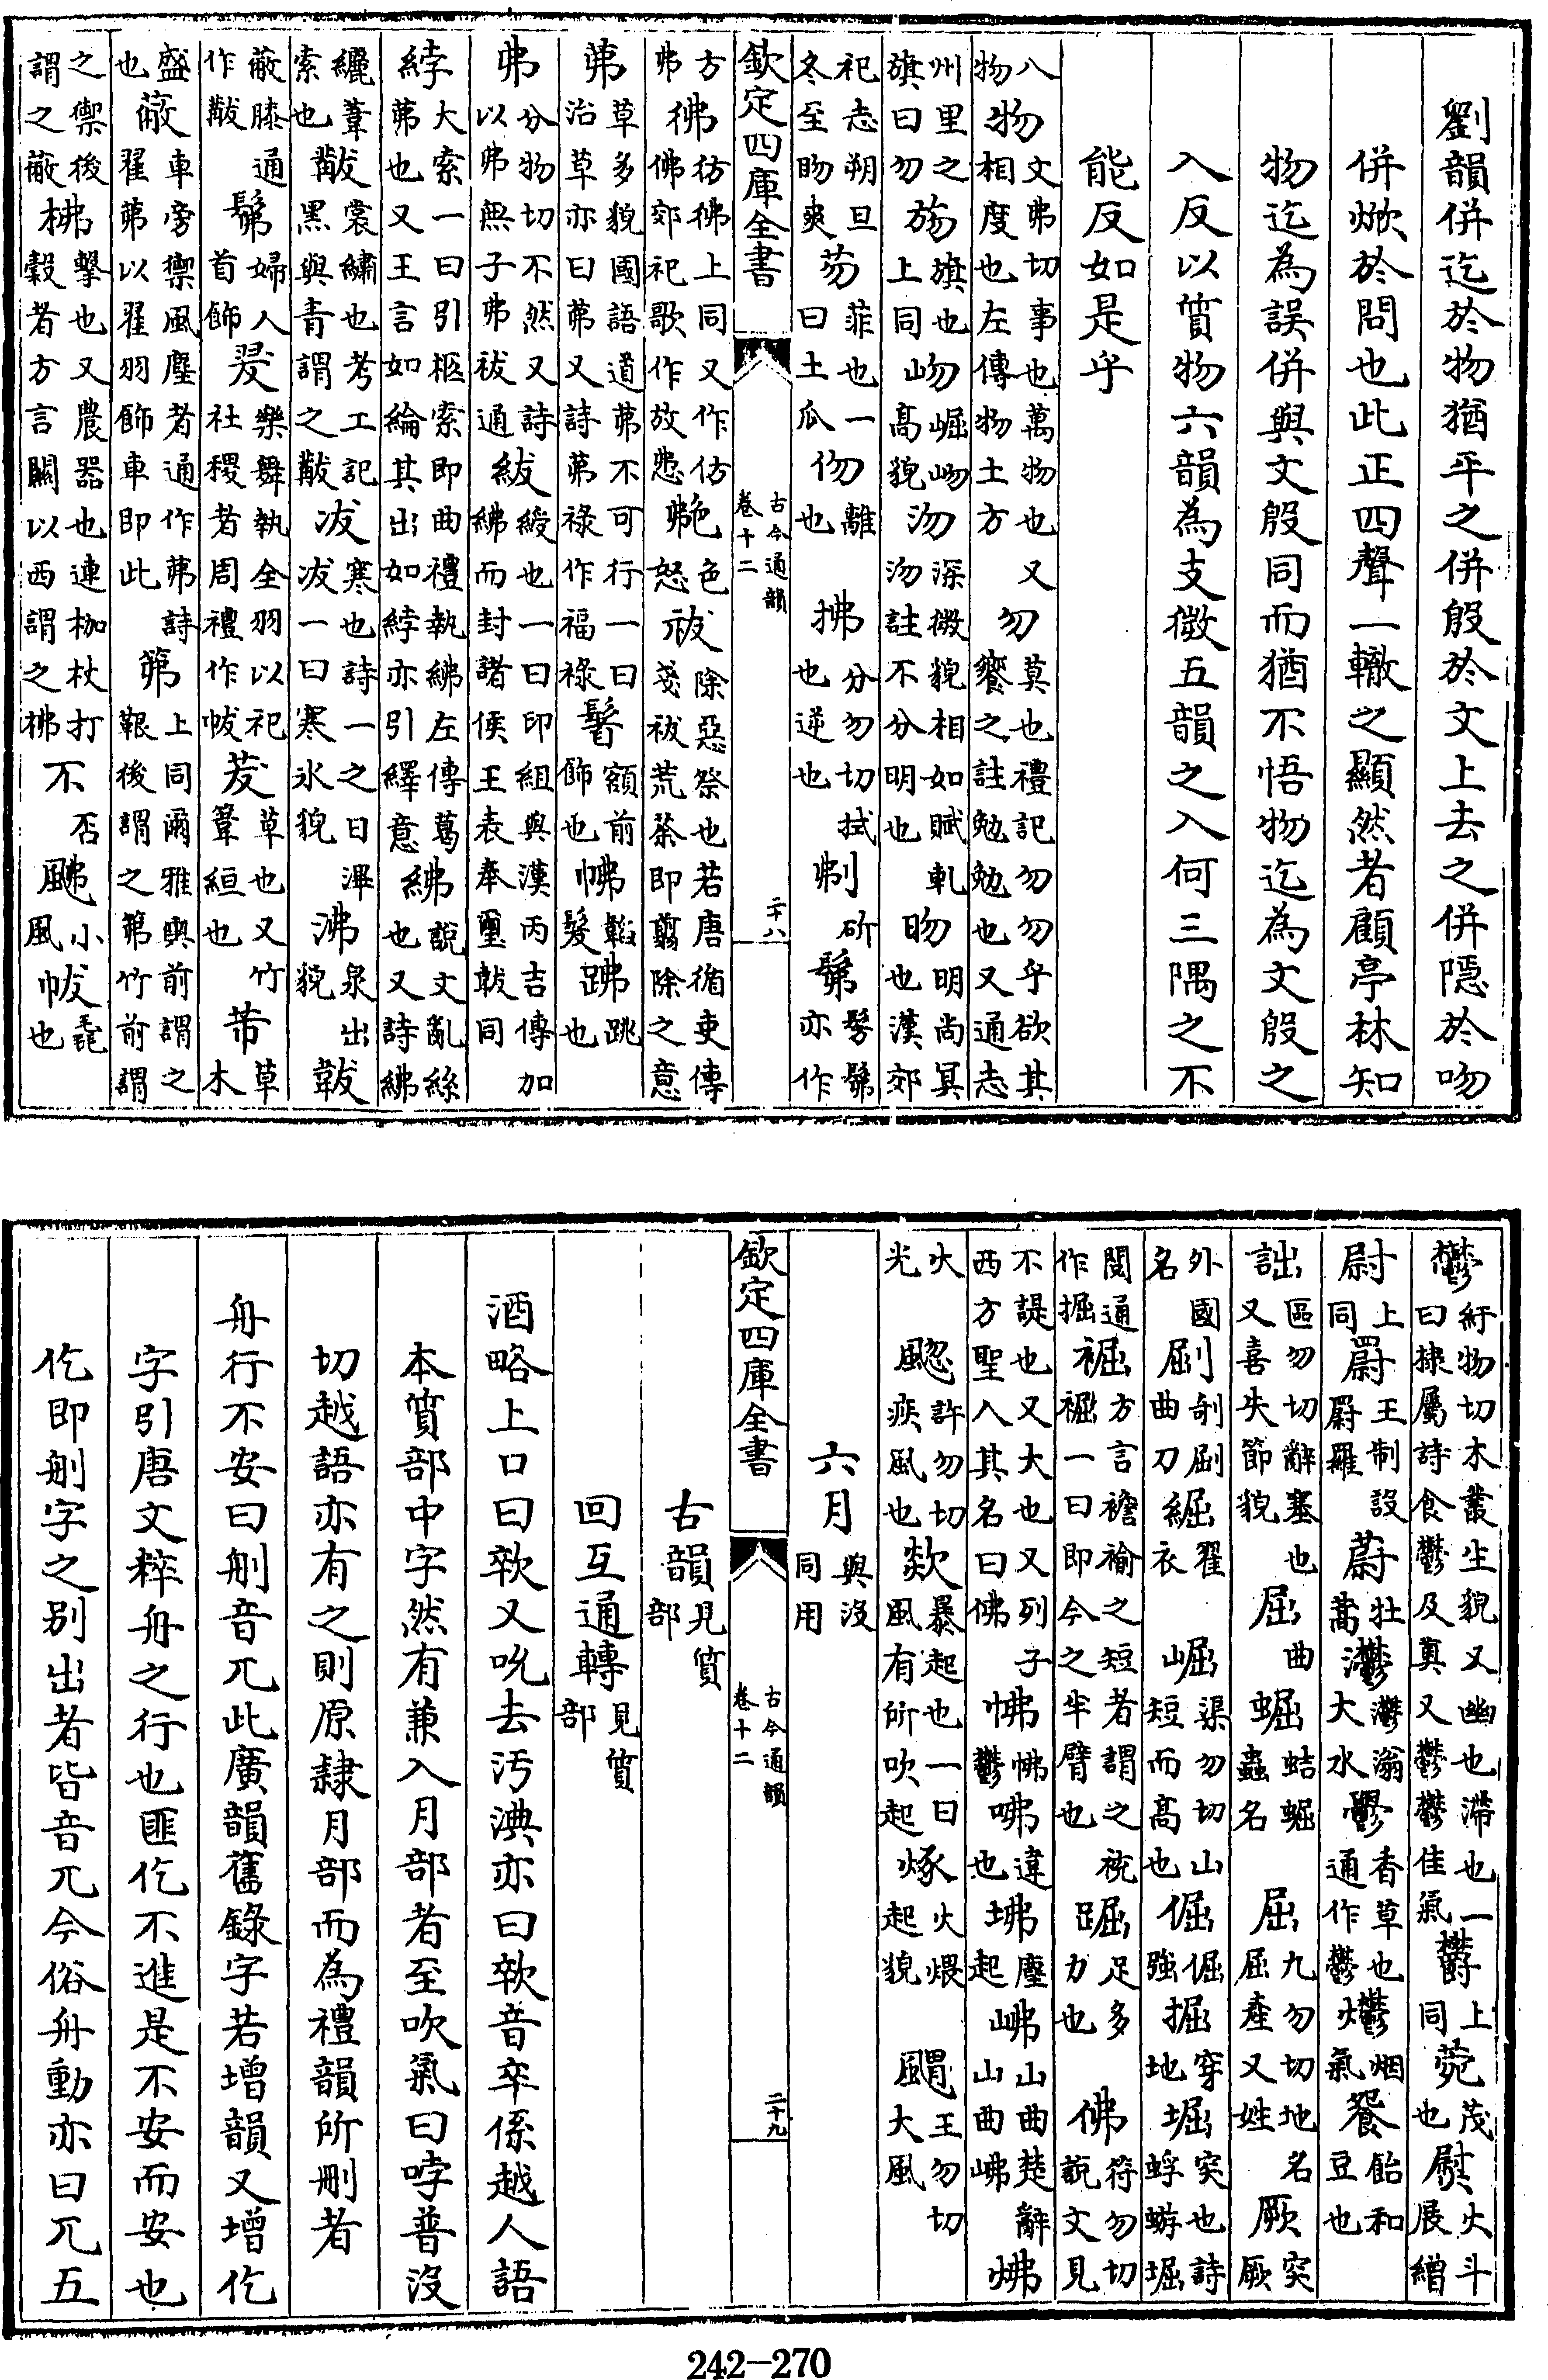 劉韻併迄於物猶平之併殷於文上去之併隱於吻
併焮於問也此正四聲一轍之顯然者顧亭林知
物迄為誤併與文殷同而猶不悟物迄為文殷之
入反以質物六韻為支微五韻之入何三隅之不
能反如是乎
八物物文弗切事也萬物也又相度也左傳物土方勿莫也禮記勿勿乎欲其饗之註勉勉也又通志
州里之旗曰勿㫚旗也上同岉崛岉高貌沕深微貌相如賦軋沕註不分明也昒明尚冥也漢郊
祀志朔旦冬至昒爽芴菲也一曰土瓜伆離也拂分勿切拭也逆也刜斫髴髣髴亦作
欽定四庫全書 古今通韻卷十二 二十八
方弗彿彷彿上同又作仿佛郊祀歌作放㤦艴色怒色祓除惡祭也若唐循吏傳戔祓荒茶即翦除之意
茀草多貌國語道茀不可行一曰治草亦曰茀又詩茀祿作福祿髴額前飾也㡔韜髮跸跳也
弗分物切不然又詩以弗無子弗祓通紱綬也一曰印組與漢丙吉傳加紼而封諸侯王表奉璽韍同
綍大索一曰引柩索即曲禮執紼左傳葛茀也又王言如綸其出如綍亦引繹意紼說文亂絲也又詩紼
纚葦索也黻裳繡也考工記黑與青謂之黻冹寒也詩一之日滭冹一曰寒氷貌沸泉出貌韍
蔽膝通作黻髴婦人首飾翇樂舞執全羽以祀社稷者周禮作帗茇草也又竹葦絙也芾草木
盛也蔽車旁禦風塵者通作茀詩翟茀以翟羽飾車即此笰上同爾雅輿前謂之艱後謂之笰竹前謂
之禦後謂之蔽柫擊也又農器也連枷杖打穀者方言關以西謂之柫不否颫小風帗毳也
鬱紆物切木叢生貌又幽也滯也一曰棣屬詩食鬱及薁又鬱鬱佳氣欝上同菀茂也熨火斗展繒
尉上同罻王制設罻羅蔚牡蒿灪灪滃大水鬱香草也通作鬱爩烟氣䬇飴和豆也
詘區勿切辭塞也又喜失節貌屈曲蛣蛣蜛蟲名屈九勿切地名屈產又姓厥突厥
外國名剧剞剧曲刀䘿翟衣崛渠勿切山短而高也倔倔強掘穿地堀突也詩蜉蝣堀
閱通作掘裾方言襜褕之短者謂之裾一曰即今之半臂也䠇足多力也佛符勿切說文見
不諟也又大也又列子西方聖人其名曰佛怫怫鬱咈違也坲塵起岪山曲楚辭山曲岪炥
火光颮許勿切疾風也欻暴起也一曰風有所吹起㷸火煨起貌䬑王勿切大風
六月與沒同用
欽定四庫全書 古今通韻卷十二 二十九
古韻見質部
回互通轉見質部
酒略上口曰欶又吮去汚淟亦曰欶音卒係越人語
本質部中字然有兼入月部者至吹氣曰哱普沒
切越語亦有之則原隸月部而為禮韻所刪者
舟行不安曰刖音兀此廣韻舊錄字若增韻又增仡
字引唐文粹舟之行也匪仡不進是不安而安也
仡即刖字之別出者皆音兀今俗舟動亦曰兀五
242-270